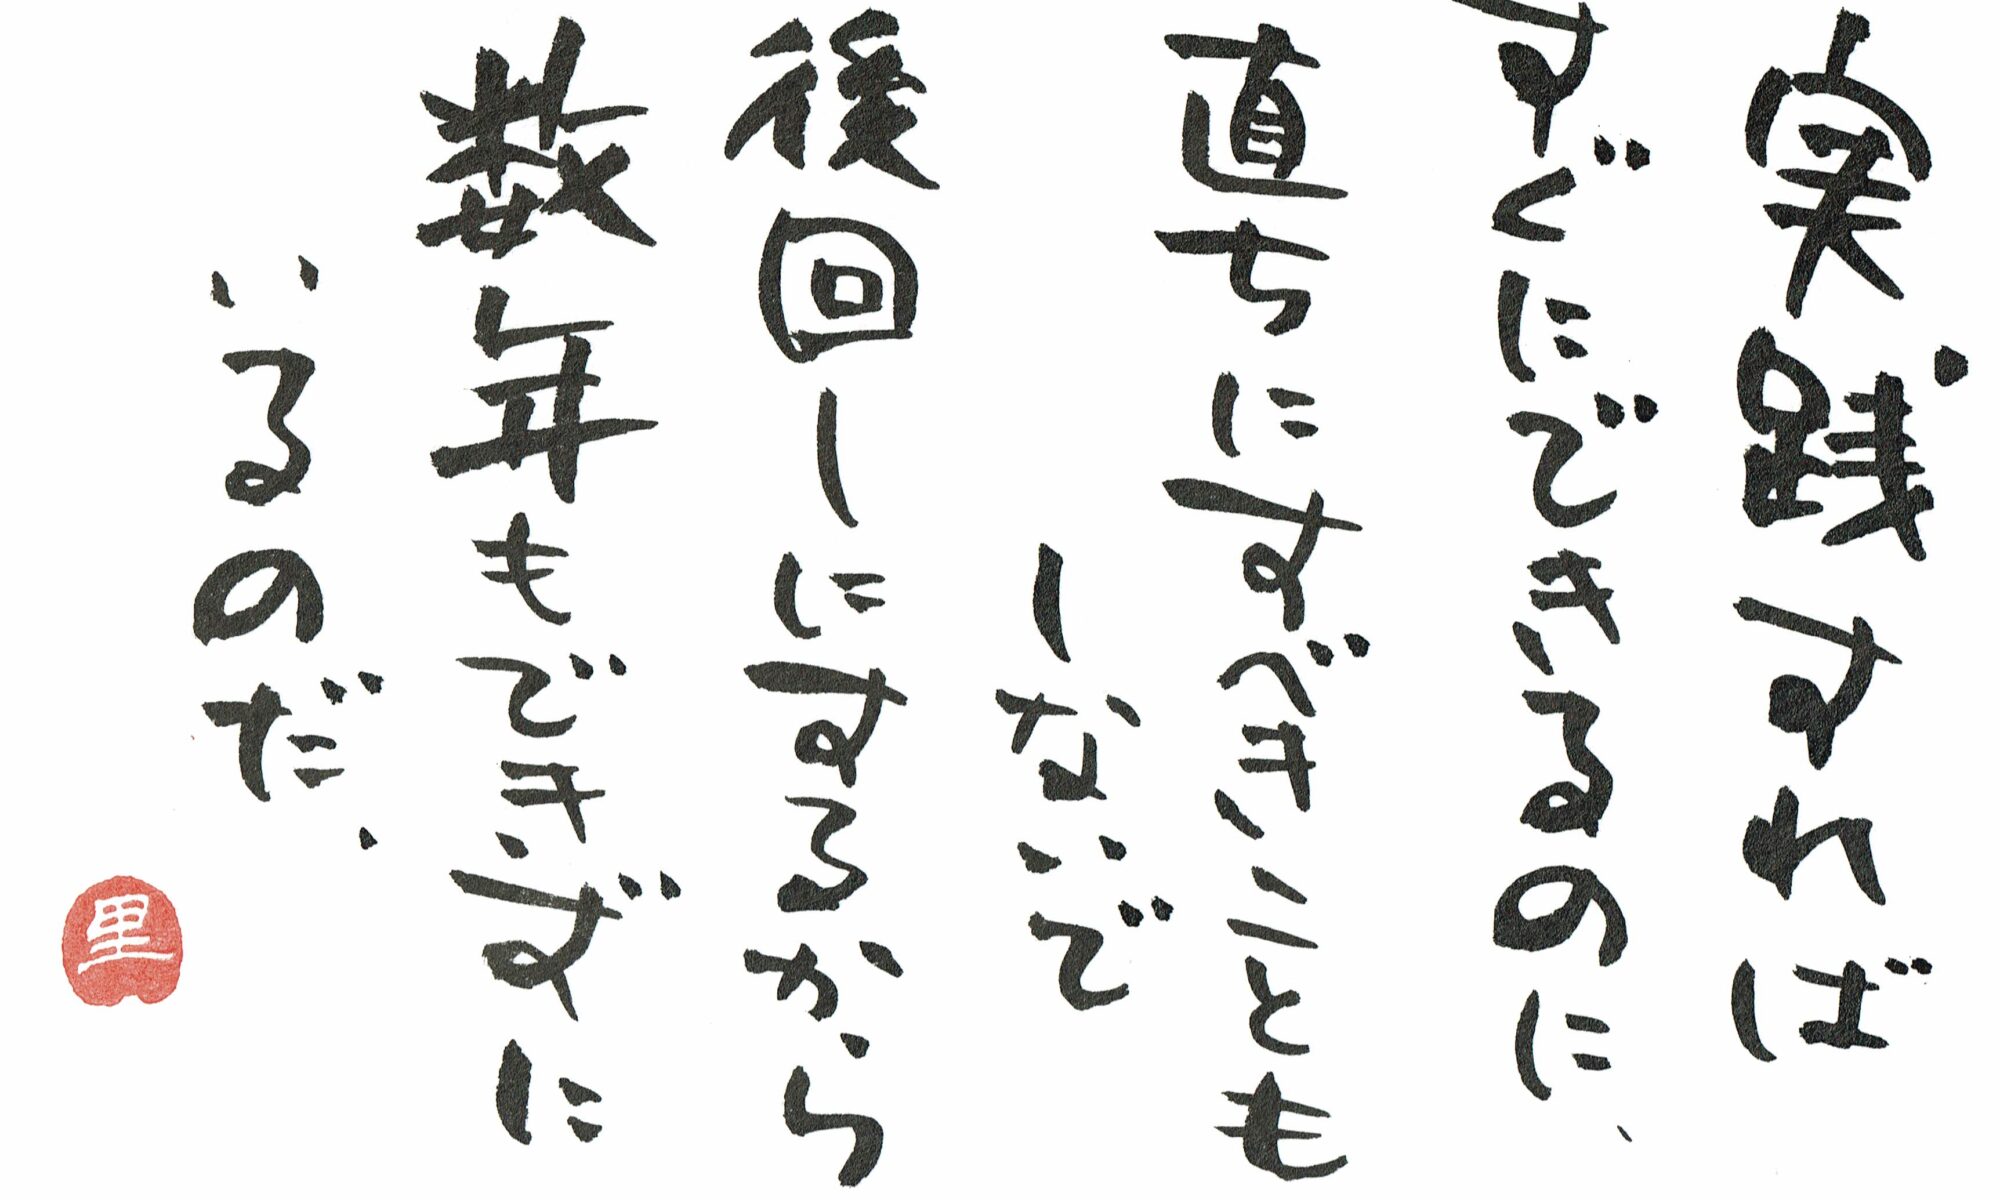 実践すれば
すぐにできるのに、
直ちにすべきことも
しないで
後回しにするから
数年もできずに
いるのだ、
里